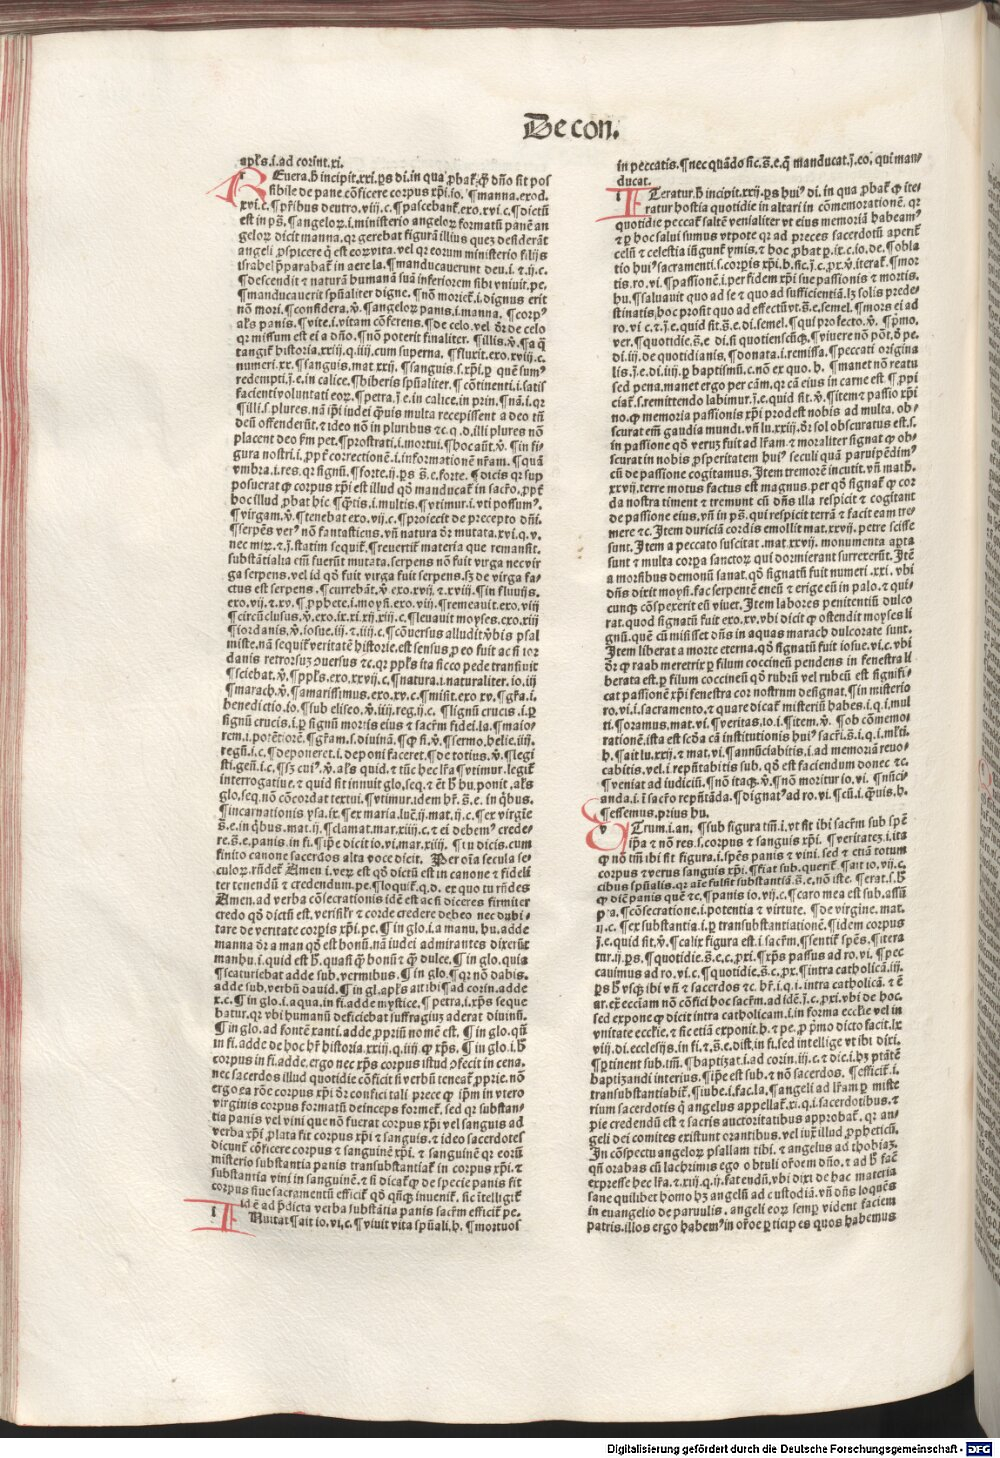 De con.
apl̃s.i.ad corint.xi.
Euera.h̃ incipit.xxi.ps di.in qua ꝓbat̃ ꝙ dño fit pos
sibile de pane cõficere corpus xp̃i.io. ¶manna.exod.
xvi.c. ¶pr̃ibus deutro.viij.c. ¶pascebant̃.exo.xvi.c. ¶dictũ
est in ps̃. ¶angeloꝝ.i.ministerio angeloꝝ formatũ panẽ an
geloꝝ dicit manna.qꝛ gerebat figurã illius quez desiderãt
israhel p̃parabat̃ in aere la. ¶manducauerunt deu.i.⁊ ij.c.
¶descendit ⁊ naturã humanã suã inferiorem sibi vniuit.pe.
¶manducauerit spũaliter digne. ¶nõ moriet̃.i.dignus erit
nõ mori. ¶considera.ṽ. ¶angeloꝝ panis.i.manna. ¶corpꝰ
al̃s panis. ¶vite.i.vitam cõferens. ¶de celo.vel ꝺr̃ de celo
qꝛ missum est ei a dño. ¶nõ poterit finaliter. ¶illis.ṽ. ¶a q̃
tangit̃ historia.xxiij.q.iiij.cum superna. ¶fluxit.exo.xviij.c.
numeri.xx. ¶sanguis.mat.xxvj. ¶sanguis.s.xp̃i.ꝑ quẽ sumꝰ
redempti.j̃.e.in calice. ¶biberis spũaliter. ¶cõtinenti.i.satis
facienti voluntati eoꝝ. ¶petra.j̃ e.in calice.in prin. ¶nã.i.qꝛ
¶illi.s.plures.nã ip̃i iudei q̃uis multa recepissent a deo tñ
deũ offenderũt.⁊ ideo nõ in pluribus ⁊c.q.d.illi plures nõ
placent deo fm̃ pet. ¶prostrati.i.mortui. ¶hoc aũt.ṽ. ¶in fi-
gura nostri.i.ꝓpt̃ correctionẽ.i.informationẽ nr̃am. ¶quã
vmbra.i.res.qꝛ signũ. ¶forte.ij.ps s̃.e.forte. ¶dicis qꝛ sup
posucrat ꝙ corpus xp̃i est illud qõ manducat̃ in sacr̃o.ꝓpt̃
hoc illud ꝓbat hic. ¶q̃tis.i.multis. ¶vtimur.i.vti possumꝰ.
¶virgam.ṽ. ¶tenebat exo.vij.c. ¶proiecit de precepto dñi.
¶serpẽs verꝰ nõ fantasticus.vñ natura ꝺr̃ mutata.xvi.q.v.
nec miꝝ.⁊.j̃.statim sequit̃. ¶reuertit̃ materia que remansit.
substãtialia em̃ fuerũt mutata.serpens nõ fuit virga nec vir
ga serpens.vel id qõ fuit virga fuit serpens.sꝫ de virga fa-
ctus est serpens. ¶currebãt.ṽ.exo.xvij.⁊.xviij. ¶in fluuijs.
exo.vij.⁊.xv. ¶ꝓphete.i.moysi.exo.viij. ¶remeauit.exo.viij
¶circũclusus.ṽ.exo ix.xi.xij.xiij.c. ¶leuauit moyses.exo.xiij
¶iordanis.ṽ.iosue.iij.⁊.iiij.c. ¶cõuersus alludit ṽbis psal
miste.nã sequit̃ veritatẽ historie.est sensus ꝙ eo fuit ac si ior
danis retrorsuꝫ ↄuersus ⁊c.qꝛ ppl̃s ita sicco pede transiuit
¶sciebat.ṽ. ¶ppl̃s.exo.xxvij.c. ¶natura.i.naturaliter.io.iij
¶marach.ṽ. ¶amarissimus.exo.xv.c. ¶misit.exo xv. ¶gr̃a.i.
benedictio.io. ¶sub eliseo.ṽ.iiij.reg.ij.c. ¶lignũ crucis.i.ꝑ
signũ crucis.i.ꝑ signũ mortis eius ⁊ sacr̃m fidel.la. ¶maio-
rem.i.potẽtiorẽ. ¶gr̃am.s.diuinã. ¶ꝙ si.ṽ. ¶sermo.helie.iiij.
regũ.i.c. ¶deponeret.i.deponi faceret. ¶de totius.ṽ. ¶legi
sti.geñ.i.c. ¶sꝫ cuiꝰ.ṽ.al̃s quid.⁊ tũc hec lr̃a ¶vtimur.legit̃
interrogatiue.⁊ quid sit innuit glo.seq.⁊ ẽt h̃ hu.ponit.al̃s
glo.seq.nõ cõcordat textui. ¶vtimur.idem hr̃.s̃.e. in q̃bus.
¶incarnationis ysa.ix. ¶ex maria.luc.ij.mat.ij.c. ¶ex virgie
s̃.e.in q̃bus.mat.ij. ¶clamat.mar.xiiij.c.⁊ ei debemꝰ crede-
re.s̃.e.panis.in fi. ¶ip̃e dicit io.vi.mar.xiiij. ¶tu dicis.cum
finito canone sacerdos alta voce dicit. Per oĩa secula se-
culoꝝ.rñdet̃ Amen.i.veꝝ est qõ dictũ est in canone ⁊ fideli
ter tenendũ ⁊ credendum.pe. ¶loquit̃.q.d.ex quo tu rñdes
Amen.ad verba cõsecrationis idẽ est ac si diceres firmiter
credo qõ dictũ est.verisil̃r ⁊ corde credere debeo nec dubi-
tare de veritate corp̃is xp̃i.pe. ¶in glo.i.a manu.hu.adde
manna ꝺr̃ a man qõ est bonũ.nã iudei admirantes dixerũt
manhu.i.quid est h̃.quasi ꝙ̃ bonũ ⁊ ꝙ̃ dulce. ¶in glo.quia
¶scaturiebat adde sub.vermibus. ¶in glo. ¶qꝛ nõ dabis.
adde sub.verbũ dauid. ¶in gl.apl̃s ait ibi ¶ad corin.adde
x.c. ¶in glo.i.aqua.in fi.adde mystice. ¶petra.i.xp̃s seque
batur.qꝛ vbi humanũ deficiebat suffragiuꝫ aderat diuinũ.
¶in glo.ad fontẽ xanti.adde ꝓpriũ nomẽ est. ¶in glo.qñ
in fi.adde de hoc hr̃ historia.xxiij.q.iiij ꝙ xp̃s. ¶in glo.i.h̃
corpus in fi.adde.ergo nec xp̃s corpus istud ↄfecit in cena.
nec sacerdos illud quotidie cõficit si verbũ teneat̃ ꝓprie.nõ
virginis corpus formatũ deinceps formet̃.sed qꝛ substan-
tia panis vel vini que nõ fuerat corpus xp̃i vel sanguis ad
verba xp̃i ꝓlata fit corpus xp̃i ⁊ sanguis.⁊ ideo sacerdotes
dicunt̃ cõficere corpus ⁊ sanguinẽ xp̃i.⁊ sanguinẽ qꝛ eorũ
misterio substantia panis transubstantiat̃ in corpus xp̃i.⁊
substantia vini in sanguinẽ.⁊ si dicat̃ ꝙ de specie panis fit
corpus siue sacramentũ efficit̃ qõ q̃nqꝫ inuenit̃.sic ĩtelligit̃
id ẽ ad p̃dicta verba substãtia panis sacr̃m efficit̃ pe.
Ruitat ¶ait io.vi.c. ¶viuit vita spũali.h. ¶mortuos
in peccatis. ¶nec quãdo sic.s̃.e.q̃ manducat.j̃.eo.qui man-
ducat.
Teratur.h̃ incipit.xxij.ps huiꝰ di.in qua ꝓbat̃ ꝙ ite-
ratur hostia quotidie in altari in cõmemorationẽ.qꝛ
quotidie peccat̃ saltẽ venialiter vt eius memoriã habeamꝰ
⁊ ꝑ hoc salui sumus vtpote qꝛ ad preces sacerdotũ aperit̃
celũ ⁊ celestia iñgunt̃ ymis.⁊ hoc ꝓbat ꝑ.it.c.io.de. ¶obla
tio huiꝰ sacramenti.s.corp̃is xp̃i.h.sic.j̃.c.ꝓx.ṽ.iterat̃. ¶mor
tis.ro.vi. ¶passionẽ.i.per fidem xp̃i sue passionis ⁊ mortis.
hu. ¶saluauit quo ad se ⁊ quo ad sufficientiã.lꝫ solis prede-
stinatis.hoc profit quo ad effectũ vt.s̃.e.semel. ¶mors ei ad
ro.vi c.⁊.j̃.e.quid sit.s̃.e.di.semel. ¶qui profecto.ṽ. ¶p̃mo.
ver. ¶quotidie.s̃.e di.si quotienscũqꝫ. ¶viuere nõ põt.ꝺe pe.
di.iij.de quotidianis. ¶donata.i.remissa. ¶peccati origina
lis.j̃.e.di.iiij.ꝑ baptismũ.c.nõ ex quo.h. ¶manet nõ reatu
sed pena.manet ergo per cãm.qꝛ cã eius in carne est ¶ꝓpi
ciat̃.s.remittendo labimur.j̃.e.quid sit.ṽ. ¶item ⁊ passio xp̃i
no.ꝙ memoria passionis xp̃i prodest nobis ad multa.ob-
scurat em̃ gaudia mundi.vñ lu.xxiij.ꝺr̃ sol obscuratus est.s.
in passione qõ veruꝫ fuit ad lr̃am.⁊ moraliter signat ꝙ ob-
scurat in nobis ꝓsperitatem huiꝰ seculi quã paruipẽdimꝰ
cũ de passione cogitamus. Item tremorẽ incutit.vñ math.
xxvij.terre motus factus est magnus.per qõ signat̃ ꝙ cor
da nostra timent ⁊ tremunt cũ dñs illa respicit ⁊ cogitant
de passione eius.vñ in ps̃.qui respicit terrã ⁊ facit eam tre-
mere ⁊c. Item duriciã cordis emollit mat.xxvij.petre scisse
sunt. Item a peccato suscitat.mat.xxvij. monumenta apta
sunt ⁊ multa corꝑa sanctoꝝ qui dormierant surrexerũt. Itẽ
a morsibus demonũ sanat.qõ signatũ fuit numeri.xxi.vbi
dñs dixit moysi.fac serpentẽ eneũ ⁊ erige eũ in palo.⁊ qui-
cunqꝫ cõspexerit eũ viuet. Item labores penitentiũ dulco
rat.quod signatũ fuit exo.xv.vbi dicit̃ ꝙ ostendit moyses li
gnũ.quẽ cũ misisset dñs in aquas marach dulcorate sunt.
Item liberat a morte eterna.qõ signatũ fuit iosue.vi.c.vbi
ꝺr̃ ꝙ raab meretrix ꝑ filum coccineũ pendens in fenestra li
berata est.ꝑ filum coccineũ qõ rubrũ vel rubeũ est signifi-
cat passionẽ xp̃i fenestra cor nostrum designat. ¶in misterio
ro.vi.i.sacramento.⁊ quare dicat̃ misteriũ habes.i.q.i.mul
ti. ¶oramus.mat.vi. ¶veritas.io.i. ¶item.ṽ. ¶ob cõmemo-
rationẽ.ista est scða cã institutionis huiꝰ sacr̃i.s̃.i.q.i.ml̃ti.
h. ¶ait lu.xxij.⁊ mat.vi. ¶annũciabitis.i.ad memoriã reuo-
cabitis.vel.i rep̃ntabitis sub.qõ est faciendum donec ⁊c.
¶veniat ad iudiciũ. ¶nõ itaqꝫ.ṽ. ¶nõ moritur io.vi. ¶nũci-
anda.i.ĩ sacr̃o rep̃ntãda. ¶dignatꝰ ad ro.vi. ¶cũ.i.q̃uis.h.
¶essemus.prius hu.
Trum.i.an. ¶sub figura tm̃.i.vt sit ibi sacr̃m sub spẽ
ip̃a ⁊ nõ res.s.corpus ⁊ sanguis xp̃i. ¶veritateꝫ.i.ita
ꝙ nõ tm̃ ibi sit figura.i.spẽs panis ⁊ vini.sed ⁊ etiã totum
corpus ⁊ verus sanguis xp̃i. ¶fiat sub.querit̃. ¶ait io.vij.c.
¶cõsecratione.i.potentia ⁊ virtute. ¶de virgine.mat.
ij.c. ¶ex substantia.i.ꝑ transubstantiationẽ. ¶idem corpus
j̃.e.quid sit.ṽ. ¶calix figura est.i.sacr̃m. ¶sentit̃ spẽs. ¶itera
tur.ij.ps. ¶quotidie.s̃.e.c.ꝓxi. ¶xp̃s passus ad ro.vi. ¶pec
cauimus ad ro.vi.c. ¶quotidie.s̃.c.ꝓx. ¶intra catholicã.iij.
sed expone ꝙ dicit intra catholicam.i.in forma ecclie vel in
vnitate ecclie.⁊ sic etiã exponit.h.⁊ pe.ꝓ p̃mo dicto facit.lx
vij.di.ecclesijs.in fi.⁊.s̃.e.dist.in fi.sed intellige vt ibi dixi.
¶ptinent sub.tm̃. ¶baptizat.i ad corin.iij.c.⁊ dic.i.hꝫ ptãtẽ
baptizandi interius. ¶ip̃e est sub.⁊ nõ sacerdos. ¶efficit̃.i.
transubstantiabit̃. ¶iube.i.fac.la. ¶angeli ad lr̃am ꝑ miste
rium sacerdotis q̃ angelus appellat̃.xi.q.i.sacerdotibus.⁊
pie credendũ est ⁊ sacris auctoritatibus approbat̃.qꝛ an-
geli dei comites existunt orantibus.vel iux̃ illud ꝓpheticũ.
In cõspectu angeloꝝ psallam tibi.⁊ angelus ad thobiaꝫ.
qñ orabas cũ lachrimis ego obtuli or̃oem dño.⁊ ad h̃ facẽ
expresse hec lr̃a.⁊.xiij.q.ij.fatendũ.vbi dixi de hac materia
sane quilibet homo hꝫ angelũ ad custodiã.vñ dñs loquẽs
in euangelio de paruulis.angeli eoꝝ semꝑ vident faciem
patris.illos ergo habemꝰ in or̃oe ꝑticipes quos habemus
Digitalisierung gefördert durch die Deutsche Forschungsgemeinschaft - DFG